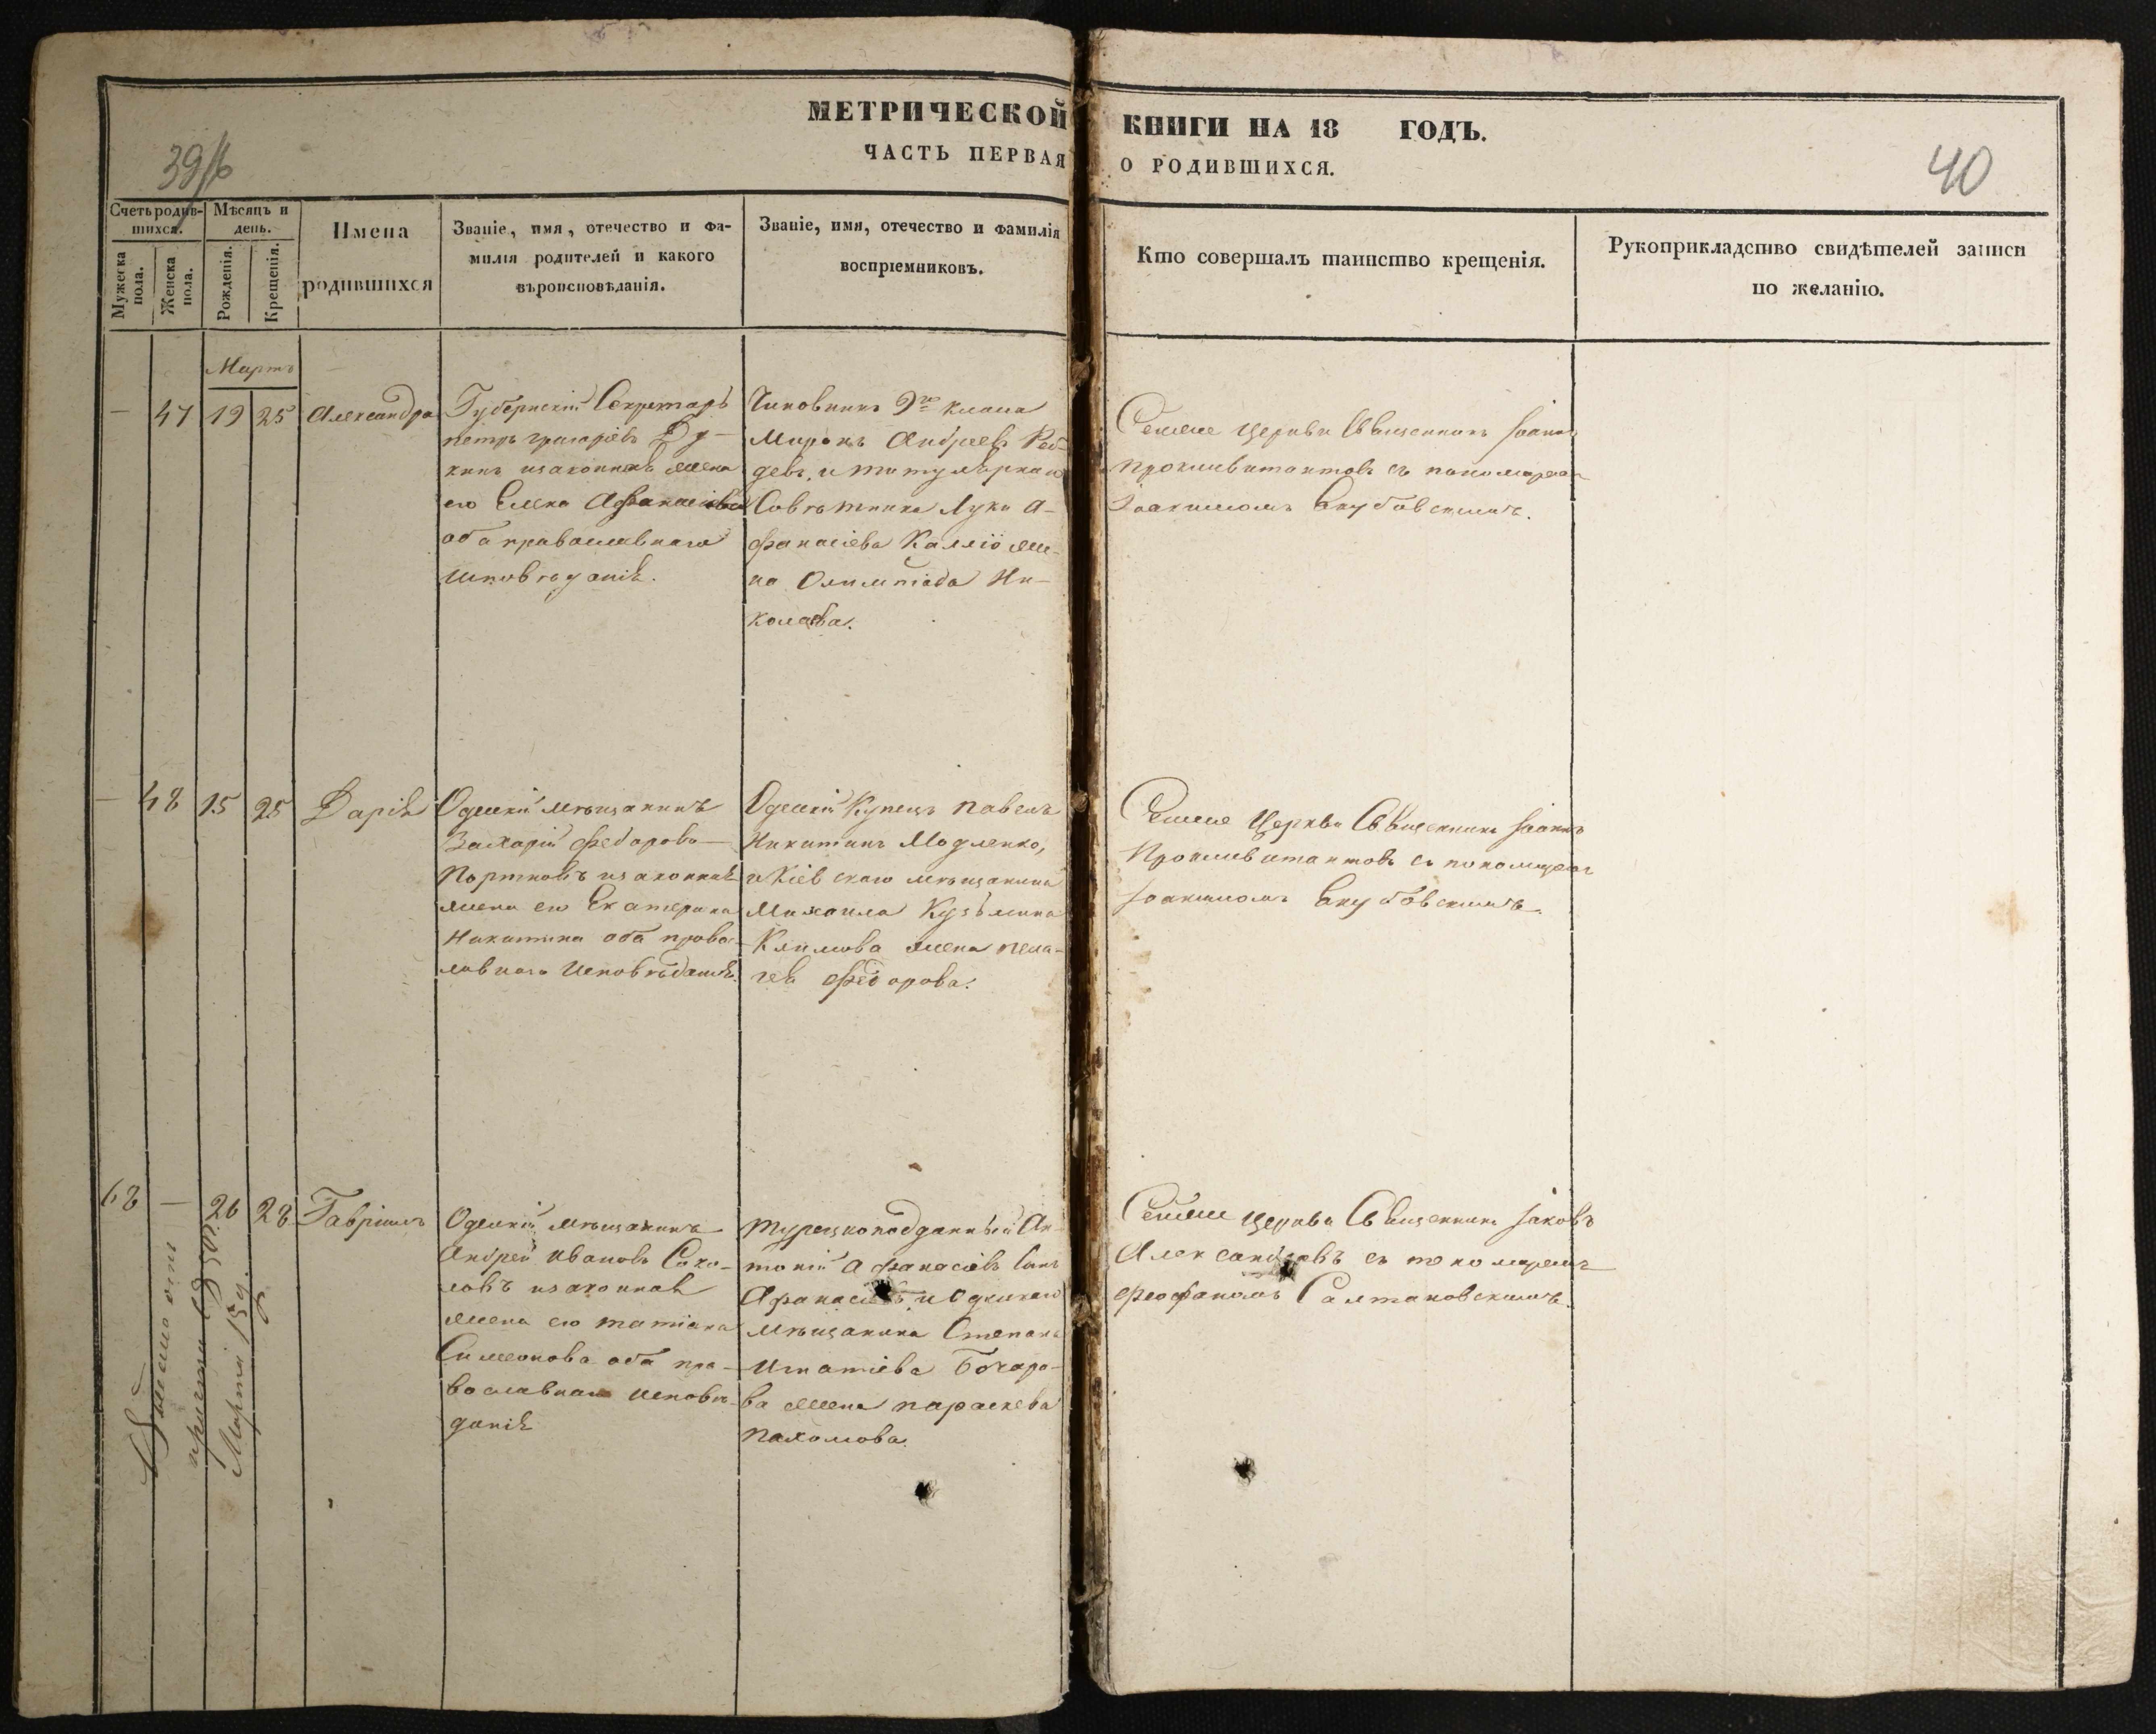 МЕТРИЧЕСКОЙ КНИГИ НА 18 ГОДЪ.
ЧАСТЬ ПЕРВАЯ О РОДИВШИХСЯ.
39/б
40
Счетъ родив-
шихся.
Мужеска
пола.
Женска
пола.
Мѣсяцъ и
день.
Рожденія.
Крещенія.
Имена
родившихся
Званіе, имя, отечество и фа-
милія родителей и какого
вѣроисповѣданія.
Званіе, имя, отечество и фамилія
воспріемниковъ.
Кто совершалъ таинство крещенія.
Рукоприкладство свидѣтелей записи
по желанію.
Мартъ
— 47 19 25 Александра
Губернскій Секретарь
петръ григоріевъ Ду-
кинъ изаконная жена
его Елена Афанасіева
оба православнаго
исповѣданія.
Чиновникъ 9го класса
Миронъ Андреевъ
девъ, и титулярнаго
Совѣтника Луки А-
фанасіева Каллію же-
на Олимпіада Ни-
колаева.
Сей же церкви Священникъ Іоаннъ
съ пономаремъ
Іоакимомъ Якубовскимъ.
— 48 15 25 Дарія
Одесскій мѣщанинъ
Захарій федоровъ
Портновъ изаконная
жена его Екатерина
Никитина оба право-
славнаго исповѣданія.
Одесскій Купецъ павелъ
Никитинъ Модленко,
и Кіевскаго мѣщанина
Михаила Кузьмина
Климова жена пела-
гея федорова.
Сей же Церкви Священникъ Іоаннъ
съ пономаремъ
Іоакимомъ Якубовскимъ.
68 — 26 28 Гавріилъ
Одесскій мѣщанинъ
Андрей Ивановъ Соко-
ловъ изаконная
жена его татіана
Симеонова оба пра-
вославнаго исповѣ-
данія
турецкоподданный Ан-
тоній Афанасіевъ Сынъ
Афанасіевъ, и Одесскаго
мѣщанина Степана
Игнатіева Бочаро-
ва жена параскева
пахомова.
Сей же церкви Священникъ Іаковъ
Александровъ съ пономаремъ
феофаномъ Салтановскимъ.
Марта